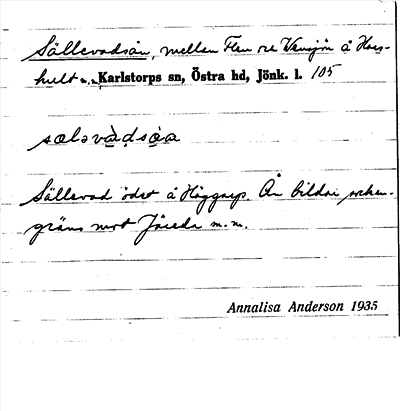 Sällevadsån, mellan Flen och Vensjön å Hors-
hult Karlstorps sn, Östra hd, Jönk. l. 105
sæləvàdsòa
Sällevad ödet å Häggarp. Ån bildar socken-
gräns mot Järeda m.m.
Annalisa Anderson 1935